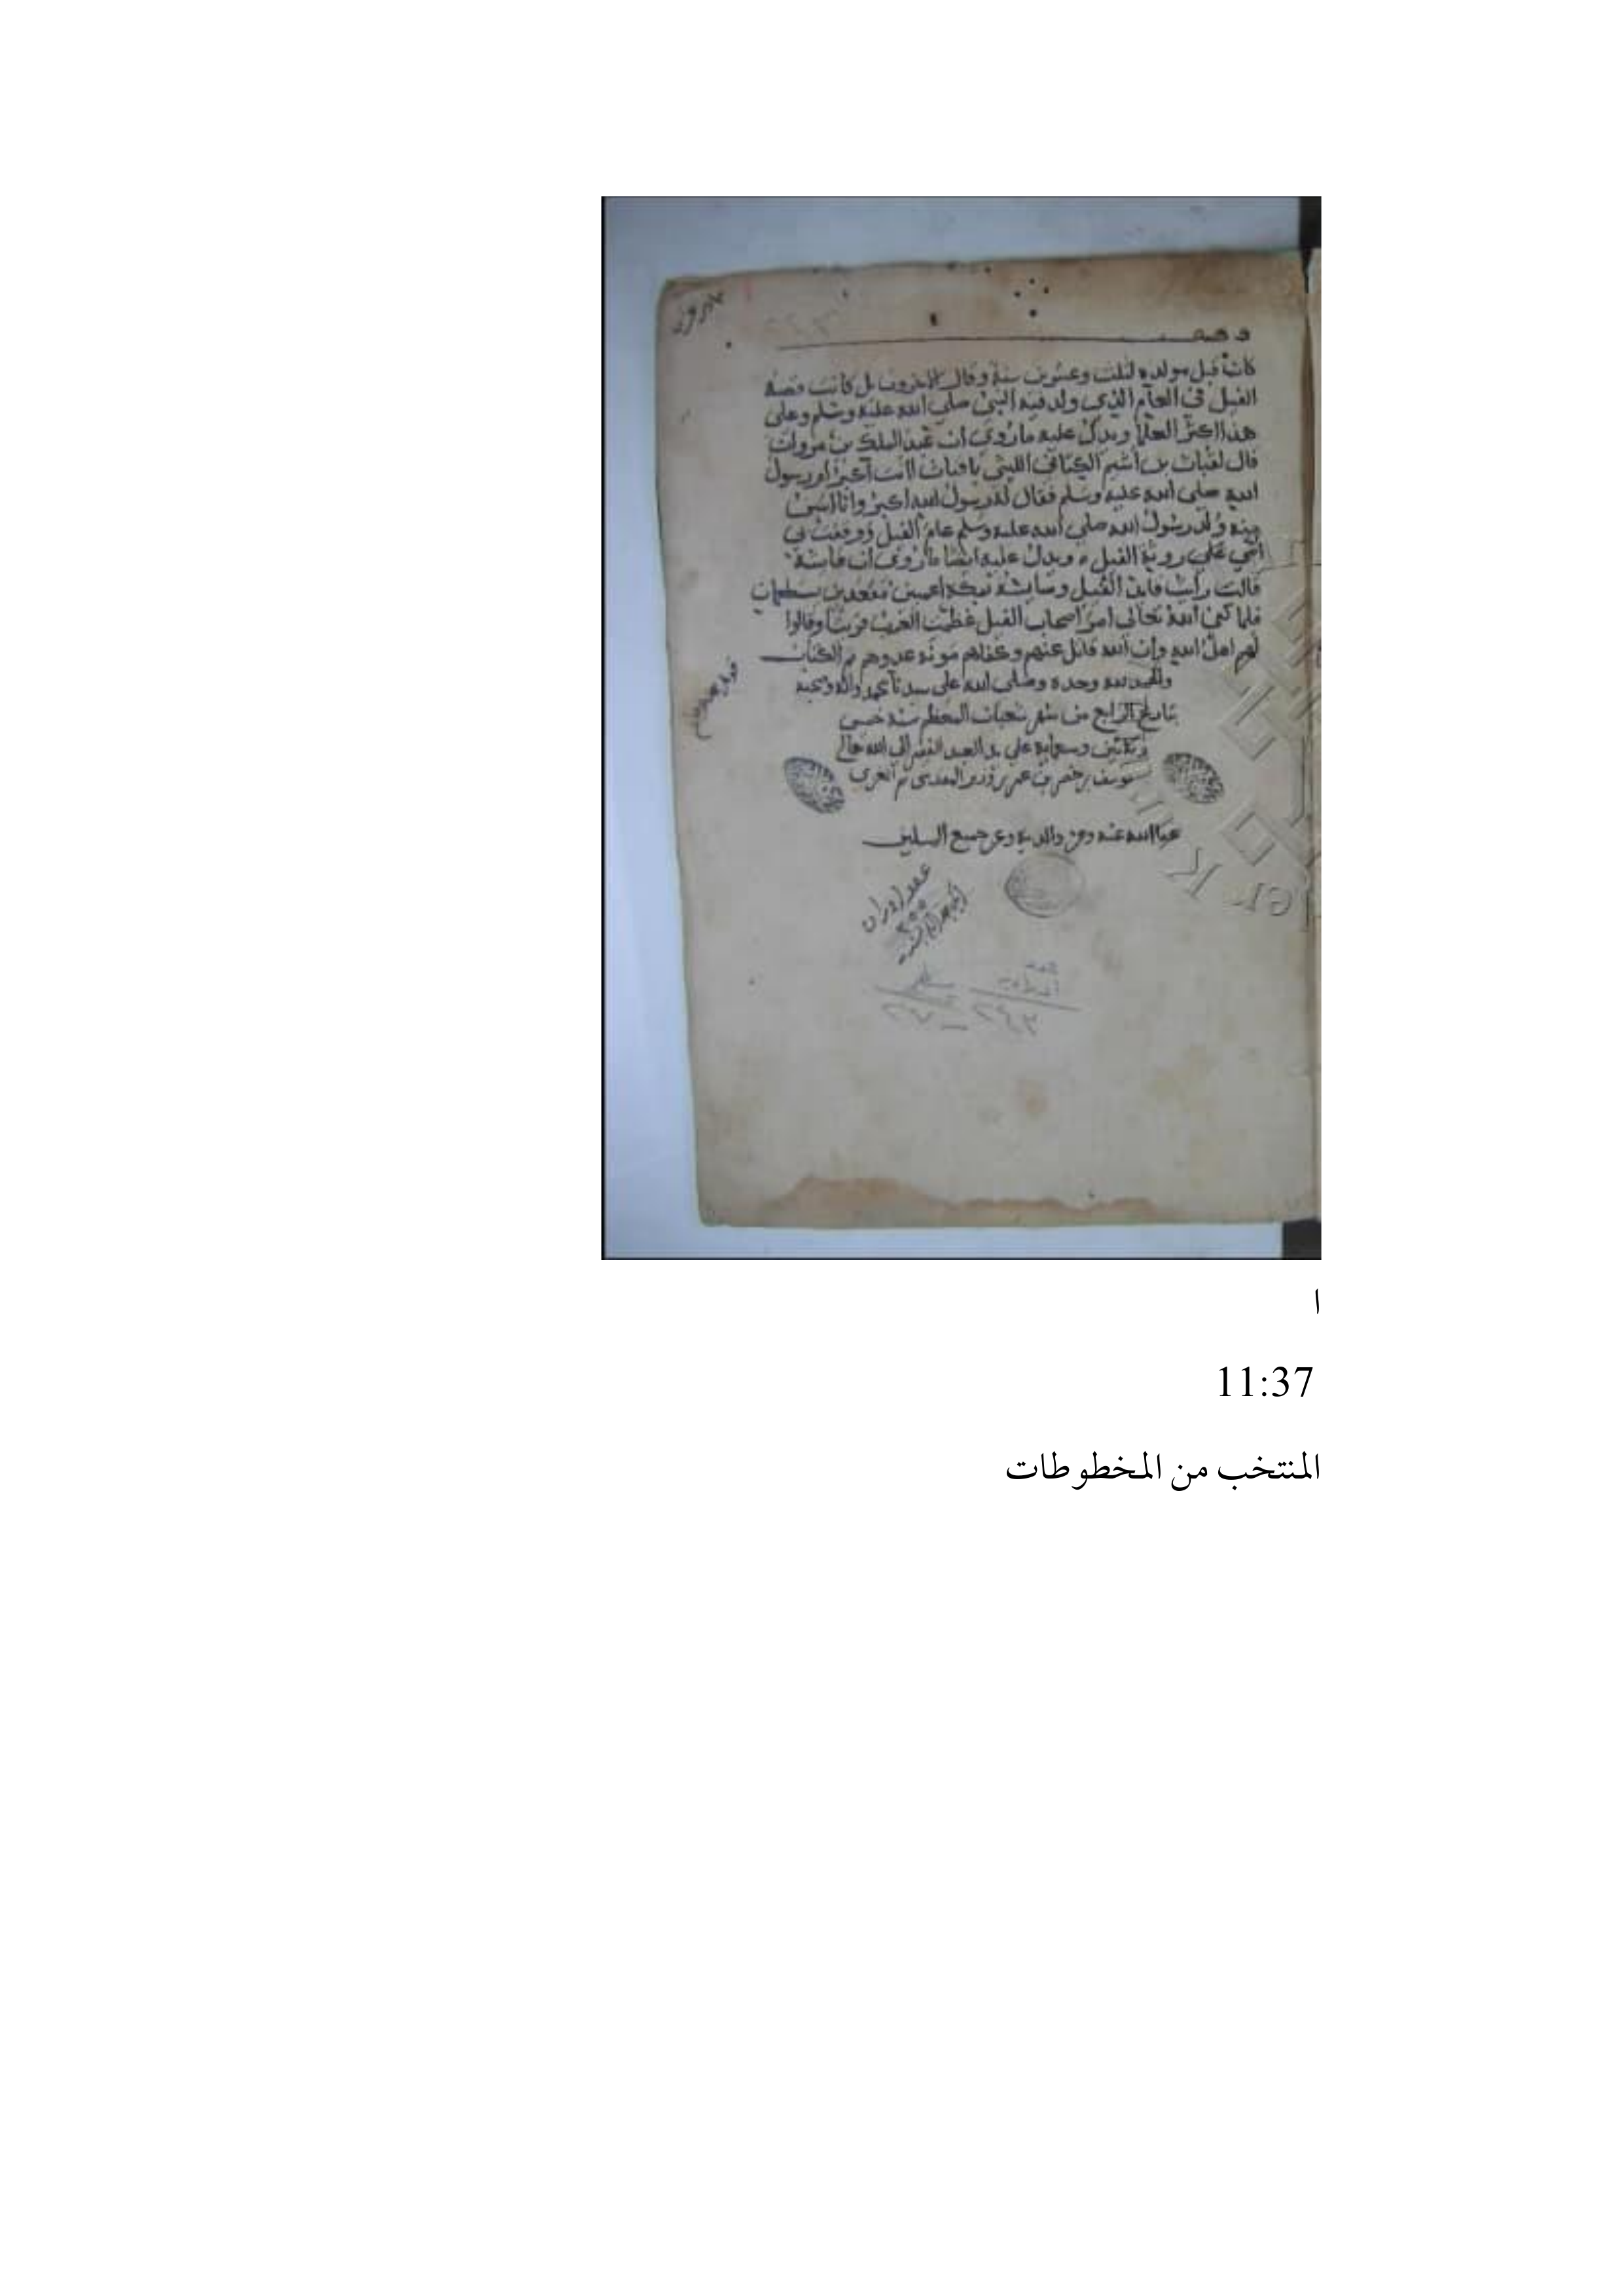 كان قبل مولده لثلث وعشرين سنة وقال الاخرون بل كانت قصة
الفيل في العام الذي ولد فيه النبي صلي الله عليه وسلم وعلى
هذا اكثر العلما ويدل عليه ما روي ان عبد الملك بن مروان
قال لقباث بن اشيم الكناني الليثي يا قباث اانت اكبر ام رسول
الله صلي الله عليه وسلم فقال له رسول الله اكبر وانا اسن
منه ولد رسول الله صلي الله عليه وسلم عام الفيل ووقفت بي
امي علي روثة الفيل ويدل عليه ايضا ما روي ان عايشة
قالت رايت قايد الفيل وسايسه بمكة اعميين مقعدين يستطعمان
فلما كفى الله تعالى امر اصحاب الفيل عظمت العرب قريشا وقالوا
لهم اهل الله وان الله قاتل عنهم وكفاهم مونة عدوهم تم الكتاب
والحمد لله وحده وصلى الله على سيدنا محمد واله وصحبه
بتاريخ الرابع من شهر شعبان المعظم سنة خمس
وسبعماية على يد العبد الفقير الى الله تعالى
يوسف بن خضر بن عمر بن المقدسي ثم
عفا الله عنه وعن والديه وعن جميع المسلمين
عدد اوراق
٢٠٠
٢٤٣
ا
11:37
المنتخب من المخطوطات